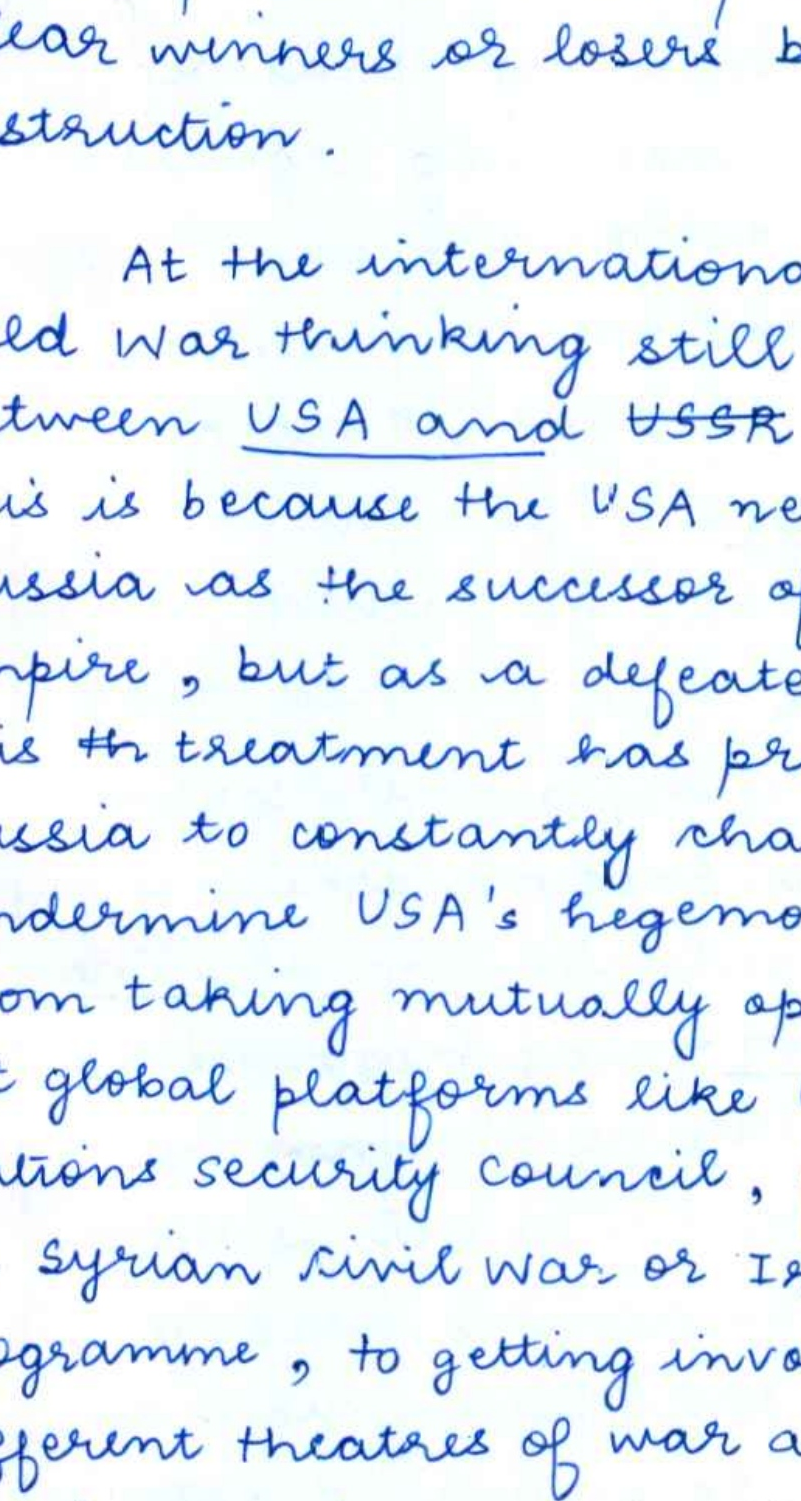 ear winners or losers b
struction.
At the internationa
ld War thinking still
tween USA and USSR
is is because the USA ne
ussia as the successor of
mpire, but as a defeate
is th treatment has pr
ussia to constantly cha
ndermine USA's hegemo
om taking mutually op
t global platforms like
ations security council,
Syrian civil war or Ir
ogramme, to getting invo
fferent theatres of war a